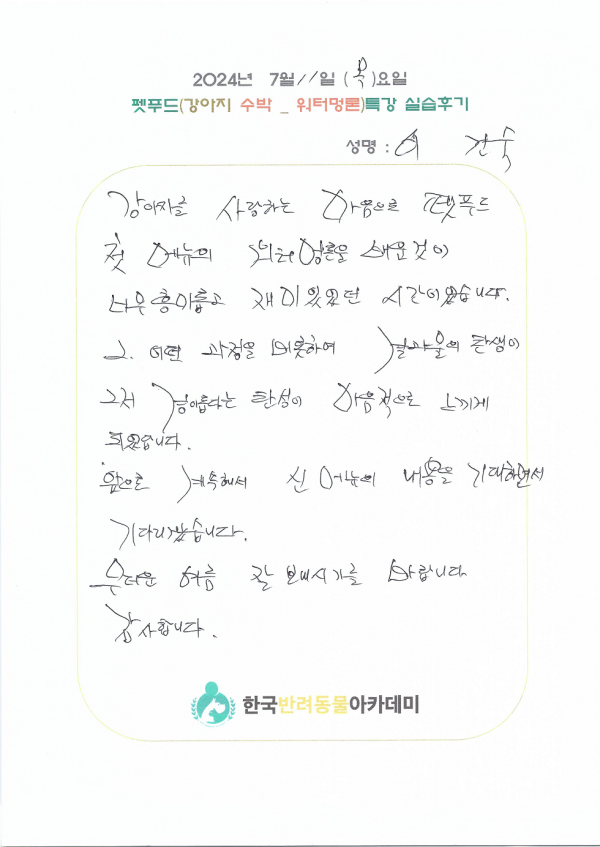 2024년 7월 11일 (목)요일
펫푸드(강아지 수박 _ 워터멍론)특강 실습후기
성명 : 이 건숙
강아지를 사랑하는 마음으로 펫푸드
첫 메뉴의 워터멍론을 배운것이
너무 흥미롭고 재미있었던 시간이었습니다.
그. 어떤 과정을 비롯하여 결과물의 탄생이
그저 경이롭다는 탄성이 마음적으로 느끼게
되었습니다.
앞으로 계속해서 신 메뉴의 내용을 기대하면서
기다리겠습니다.
무더운 여름 잘 보내시기를 바랍니다
감사합니다.
한국반려동물아카데미